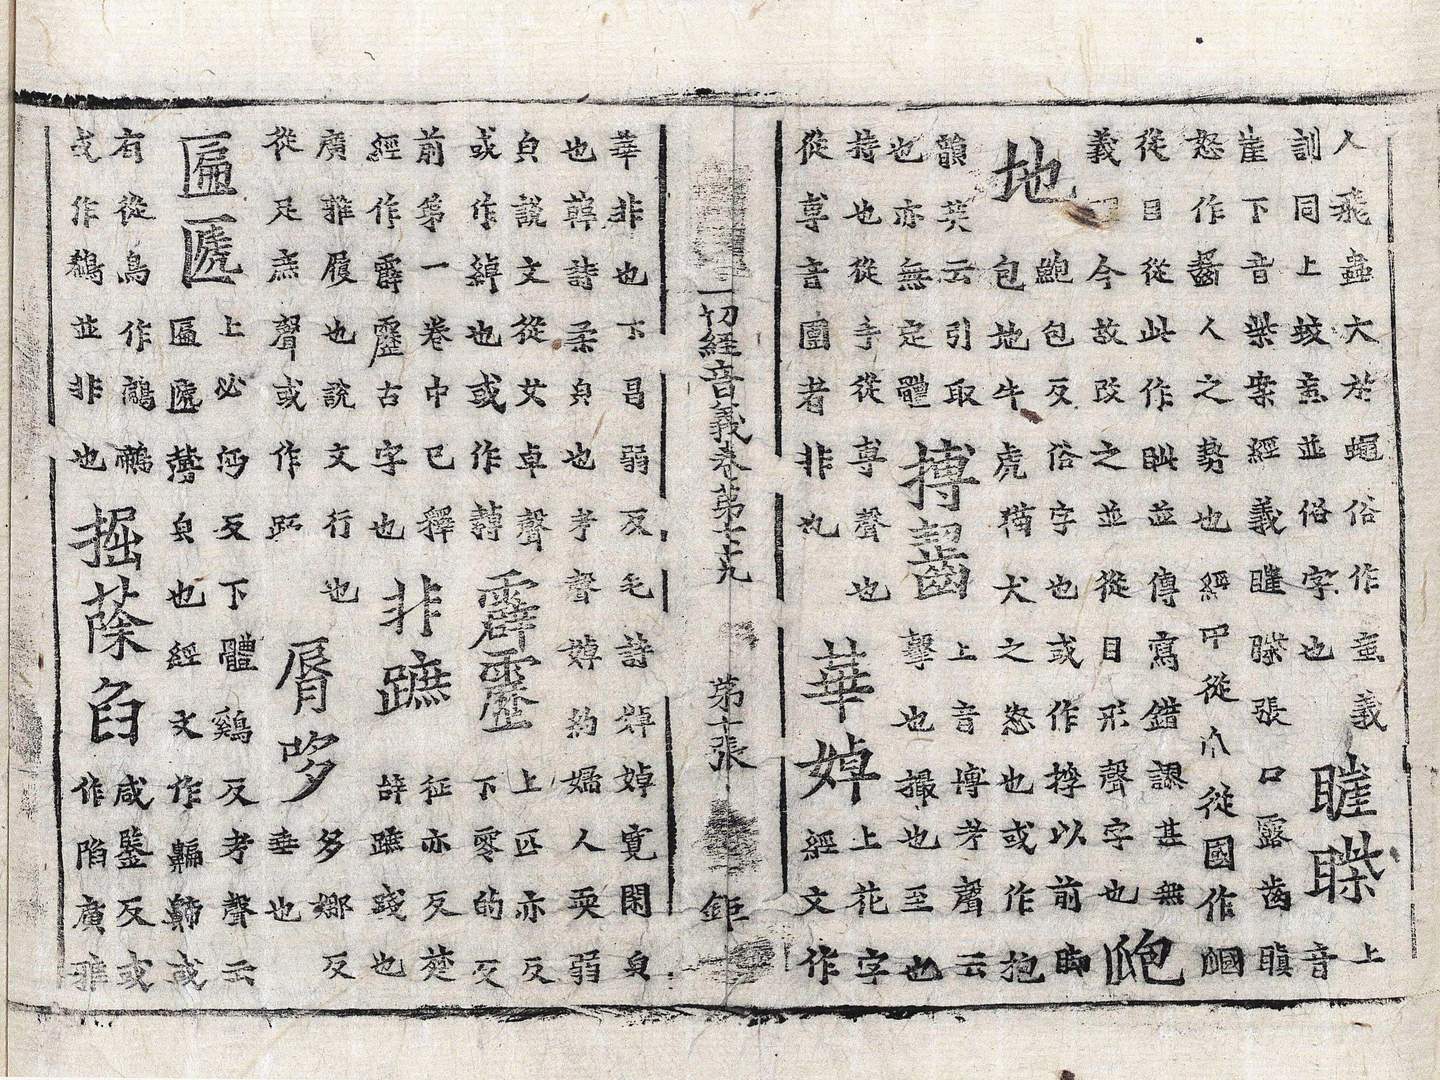 人飛蟲大於蠅俗作䖟義
訓同上蛟䖟並俗字也
睚䁾
上
音
崖下音柴案經義睚䁾張口露齒瞋
怒作齧人之勢也經甲從爪從國作㘖
從目從此作眦並傳寫錯謬甚無
義今故改之並從目形聲字也
䶌
地
鮑包反俗字也或作㨐以前脚
包地牛虎猫犬之忿也或作抱
韻英云引取也亦無定體
搏齧
上音博考聲云
擊也撮也至也
持也從手從尃聲也
從専音團者非丸
華婥
上花字
經文作
華非也下昌弱反毛詩婥婥寬閑皃
也韓詩柔皃也考聲婥約嫋人耎弱
皃說文從女卓聲
或作綽也或作䔹
霹靂
上匹亦反
下零的反
前第一卷中已釋
經作霹靂古字也
非蹠
征亦反楚
辭蹠踐也
廣雅履也說文行也
從足庶聲或作跖
脣哆
多娜反
垂也
匾㔸
上必沔反下體鷄反考聲云
匾㔸薄皃也經文作䡢䡟或
有從鳥作鶣鷈
或作鵜並非也
掘蔭臽
咸鑒反或
作陷廣雅
一切經音義卷第七十九
第十張
鉅